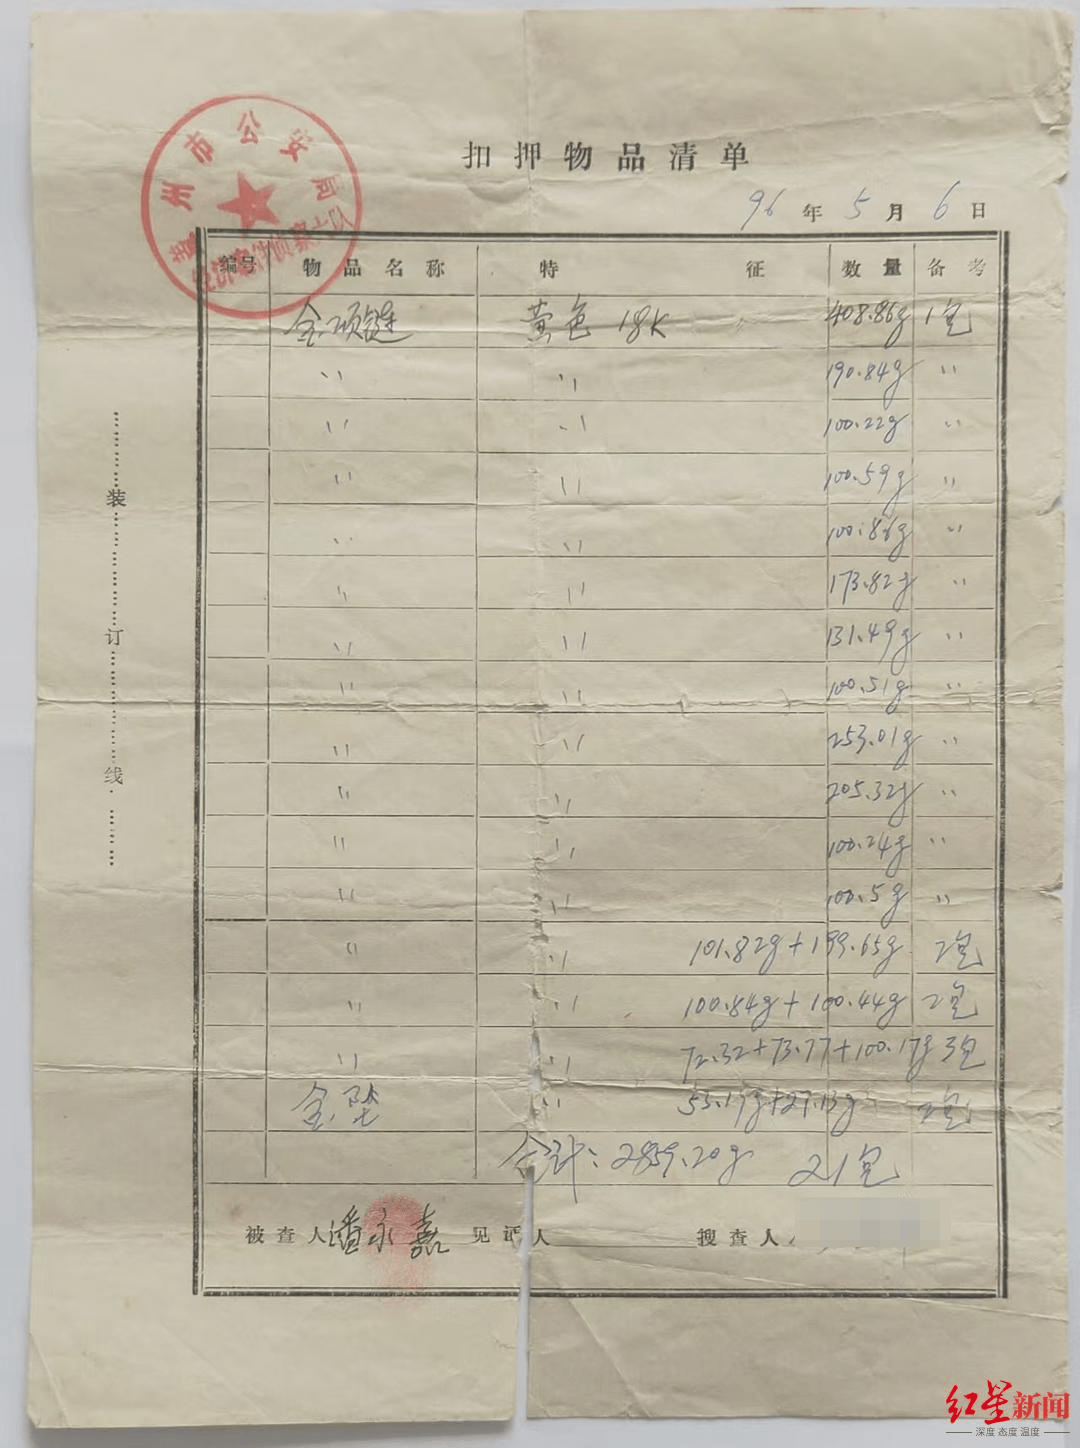 州市公安局
经济案件侦察大队
扣押物品清单
96年5月6日
编号 物品名称 特征 数量 备考
金项链 黄色 18K 〃 408.86g 1包
〃 〃 190.84g 〃
〃 〃 100.22g 〃
〃 〃 100.59g 〃
〃 〃 100.86g 〃
〃 〃 173.82g 〃
〃 〃 131.49g 〃
〃 〃 100.51g 〃
〃 〃 253.01g 〃
〃 〃 205.32g 〃
〃 〃 100.24g 〃
〃 〃 100.5g 〃
〃 〃 101.82g+199.65g 2包
〃 〃 100.84g+100.44g 2包
〃 〃 72.32+73.77+100.17g 3包
金坠 〃 2包
合计:2859.20g 21包
被查人 潘永嘉 见证人 搜查人
装订线
红星新闻
深度 态度 温度